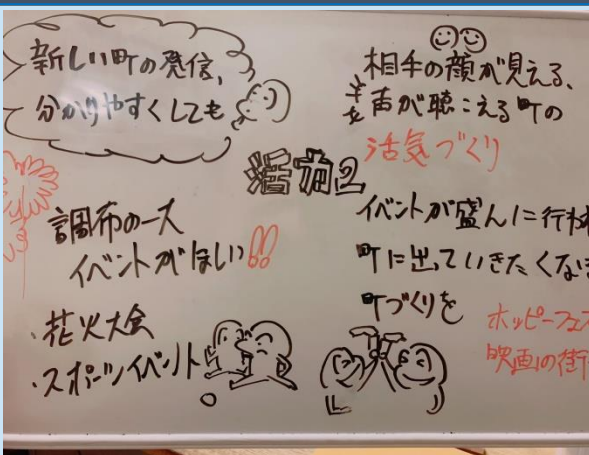 新しい町の発信、
分かりやすくしても
相手の顔が見える、
声が聴こえる町の
活気づくり
活力2
調布の一大
イベントがほしい!!
・花火大会
・スポーツイベント
イベントが盛んに行われ
町に出ていきたくなる
町づくりを
ホッピーフェス
映画の街